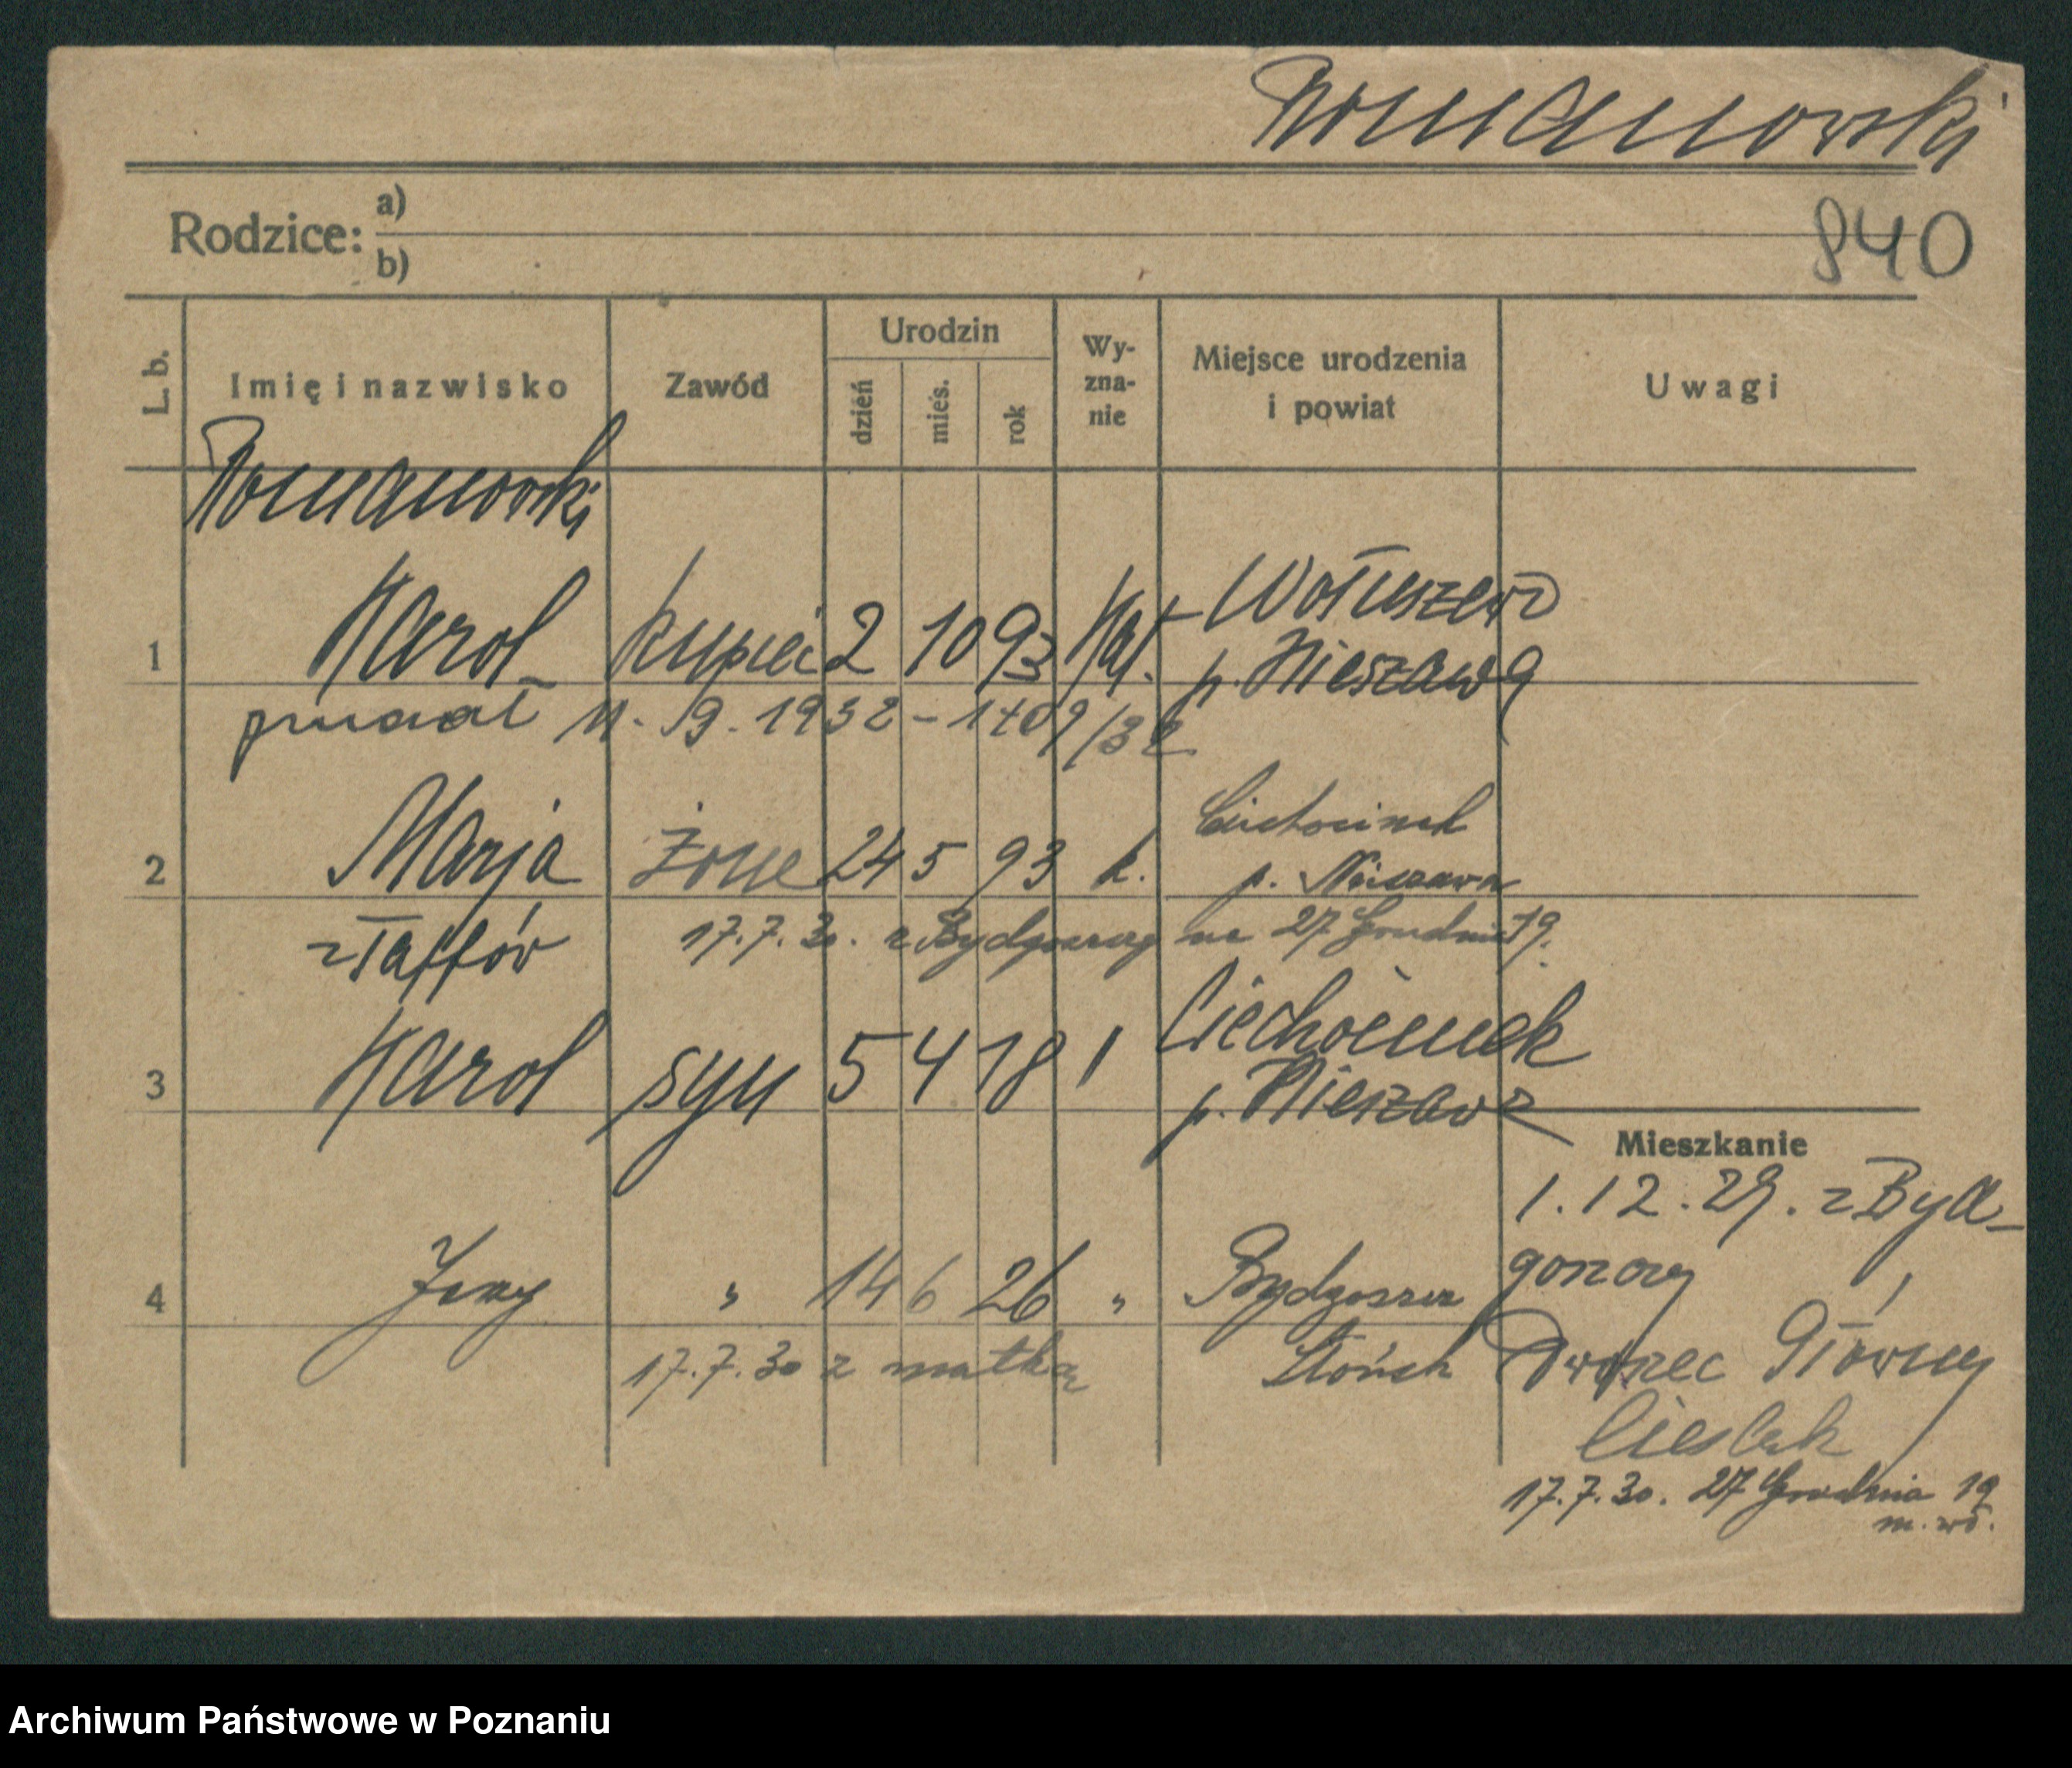 Romanowski
840
Rodzice: a)
b)
L. b. Imię i nazwisko Zawód Urodzin dzień mieś. rok Wy-zna-nie Miejsce urodzenia i powiat Uwagi
Romanowski
1 Karol kupiec 2 10 93 Kat. Wołuszewo
p. Nieszawa
11. 9. 1932 –
2 Marja żona 24 5 93 k. Ciechocinek
p. Nieszawa
17.7.30. z Bydgoszczy na 27 Grudnia 19.
3 Karol syn 5 4 18 Ciechocinek
p. Nieszawa
Mieszkanie
1.12.29. z Byd-
goszczy
4 Jerzy " 14 6 26 " Bydgoszcz
17.7.30 z matką
Dworzec Główny
17.7.30. 27 Grudnia 19
Archiwum Państwowe w Poznaniu